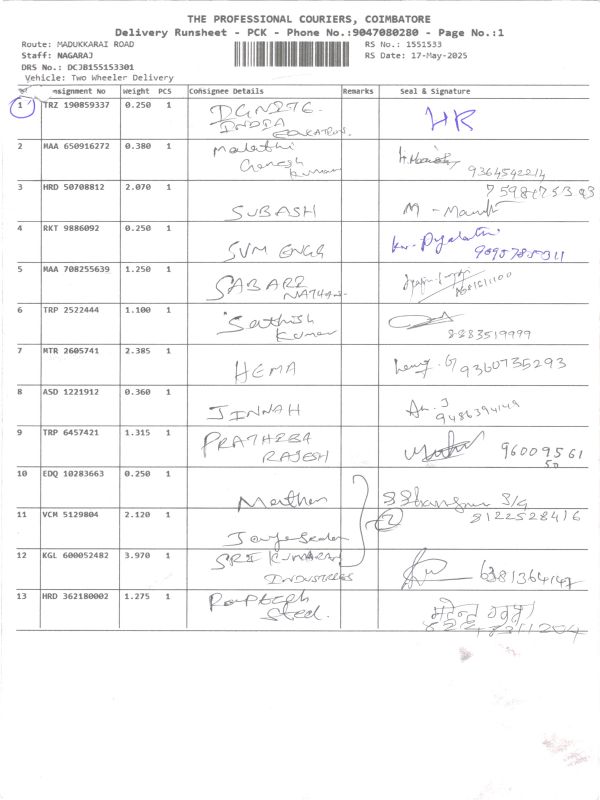 THE PROFESSIONAL COURIERS, COIMBATORE
Delivery Runsheet - PCK - Phone No.:9047080280 - Page No.:1
Route: MADUKKARAI ROAD
RS No.: 1551533
Staff: NAGARAJ
RS Date: 17-May-2025
DRS No.: DCJB155153301
Vehicle: Two Wheeler Delivery
Assignment No Weight PCS Consignee Details Remarks Seal & Signature
1 TRZ 190859337 0.250 1
INDIA
EDUCATION.
HR
2 MAA 650916272 0.380 1 Malathi
Ganesh
Kumar
9364542214
3 HRD 50708812 2.070 1 SUBASH M -
4 RKT 9886092 0.250 1 SVM ENGG
9095785311
5 MAA 708255639 1.250 1 SABARI
NATHAN
6 TRP 2522444 1.100 1 Sathish
Kumar
8283519999
7 MTR 2605741 2.385 1 HEMA 9360735293
8 ASD 1221912 0.360 1 JINNAH
9486394149
9 TRP 6457421 1.315 1 PRATHIBA
RAJESH
96009561
50
10 EDQ 10283663 0.250 1
11 VCM 5129804 2.120 1 2 8122528416
12 KGL 600052482 3.970 1 SRI KUMARAN
INDUSTRIES
6381364147
13 HRD 362180002 1.275 1
Steel.